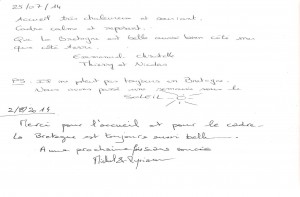 25/07/14
Accueil très chaleureux et souriant.
Cadre calme et reposant.
Que la Bretagne est belle aussi bien côté mer
que côté terre.
Emmanuel, Christelle
Thierry et Nicolas
PS: Il ne pleut pas toujours en Bretagne.
Nous avons passé une semaine sous le
SOLEIL
2/8/2014
Merci pour l'accueil et pour le cadre.
La Bretagne est toujours aussi belle
A une prochaine fois sans soucis